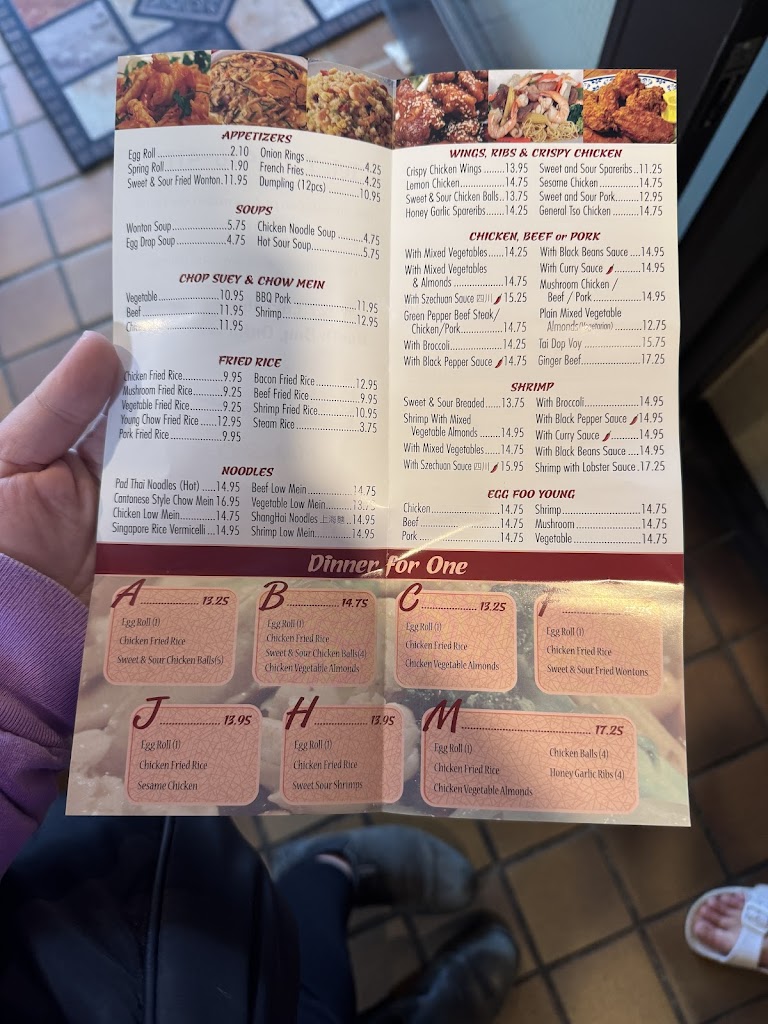 APPETIZERS
Egg Roll 2.10
Spring Roll 1.90
Sweet & Sour Fried Wonton. 11.95
Onion Rings 4.25
French Fries 4.25
Dumpling (12pcs) 10.95
SOUPS
Wonton Soup 5.75
Egg Drop Soup 4.75
Chicken Noodle Soup 4.75
Hot Sour Soup 5.75
CHOP SUEY & CHOW MEIN
Vegetable 10.95
Beef 11.95
11.95
BBQ Pork 11.95
Shrimp 12.95
FRIED RICE
Chicken Fried Rice 9.95
Mushroom Fried Rice 9.25
Vegetable Fried Rice 9.25
Young Chow Fried Rice 12.95
Pork Fried Rice 9.95
Bacon Fried Rice 12.95
Beef Fried Rice 9.95
Shrimp Fried Rice 10.95
Steam Rice 3.75
NOODLES
Pad Thai Noodles (Hot) 14.95
Cantonese Style Chow Mein 16.95
Chicken Low Mein 14.75
Singapore Rice Vermicelli 14.95
Beef Low Mein 14.75
Vegetable Low Mein
ShangHai Noodles 上海麵 14.95
Shrimp Low Mein 14.95
WINGS, RIBS & CRISPY CHICKEN
Crispy Chicken Wings 13.95
Lemon Chicken 14.75
Sweet & Sour Chicken Balls 13.75
Honey Garlic Spareribs 14.25
Sweet and Sour Spareribs 11.25
Sesame Chicken 14.75
Sweet and Sour Pork 12.95
General Tso Chicken 14.75
CHICKEN, BEEF or PORK
With Mixed Vegetables 14.25
With Mixed Vegetables
& Almonds 14.75
With Szechuan Sauce 四川 15.25
Green Pepper Beef Steak/
Chicken/Pork 14.75
With Broccoli 14.25
With Black Pepper Sauce 14.75
With Black Beans Sauce 14.95
With Curry Sauce 14.95
Mushroom Chicken /
Beef / Pork 14.95
Plain Mixed Vegetable
Almonds (Vegetarian) 12.75
Tai Dop Voy 15.75
Ginger Beef 17.25
SHRIMP
Sweet & Sour Breaded 13.75
Shrimp With Mixed
Vegetable Almonds 14.95
With Mixed Vegetables 14.75
With Szechuan Sauce 四川 15.95
With Broccoli 14.95
With Black Pepper Sauce 14.95
With Curry Sauce 14.95
With Black Beans Sauce 14.95
Shrimp with Lobster Sauce 17.25
EGG FOO YOUNG
Chicken 14.75
Beef 14.75
Pork 14.75
Shrimp 14.75
Mushroom 14.75
Vegetable 14.75
Dinner for One
A 13.25
Egg Roll (1)
Chicken Fried Rice
Sweet & Sour Chicken Balls(5)
B 14.75
Egg Roll (1)
Chicken Fried Rice
Sweet & Sour Chicken Balls(4)
Chicken Vegetable Almonds
C 13.25
Egg Roll (1)
Chicken Fried Rice
Chicken Vegetable Almonds
Egg Roll (1)
Chicken Fried Rice
Sweet & Sour Fried Wontons
J 13.95
Egg Roll (1)
Chicken Fried Rice
Sesame Chicken
H 13.95
Egg Roll (1)
Chicken Fried Rice
Sweet Sour Shrimps
M 17.25
Egg Roll (1)
Chicken Fried Rice
Chicken Vegetable Almonds
Chicken Balls (4)
Honey Garlic Ribs (4)